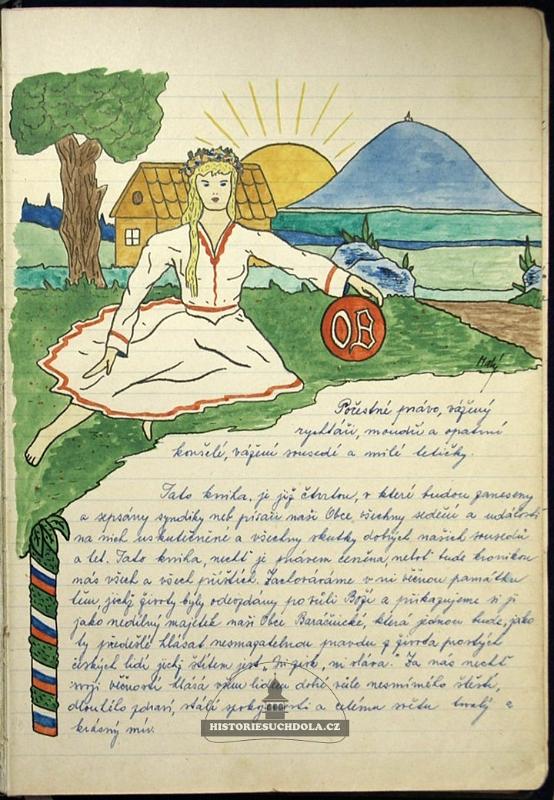 OB
Malý
Počestné právo, vážený
rychtáři, moudří a opatrní
konšelé, vážení sousedé a milé tetičky.
Tato kniha, je již čtvrtou, v které budou zaneseny
a zepsány syndiky neb písaři naší Obce všechny sedění a události
na nich uskutečněné a všechny skutky dobrých našich sousedů
a tet. Tato kniha, nechť je právem ceněna, neboť bude kronikou
nás všech a všech příštích. Zachováváme v ní věčnou památku
těm jichž životy byly odevzdány po vůli Boží a přikazujeme si ji
jako nedílný majetek naší Obce Baráčnické, která jednou bude, jako
ty předešlé hlásat nesmazatelnou pravdu z života prostých
českých lidí jichž štítem jest „ Ni zisk, ni sláva. Za nás nechť
svojí věčností hlásá všem lidem dobré vůle nesmírného štěstí,
dlouhého zdraví, stálé spokojenosti a celému světu trvalý a
krásný mír.
HISTORIESUCHDOLA.CZ